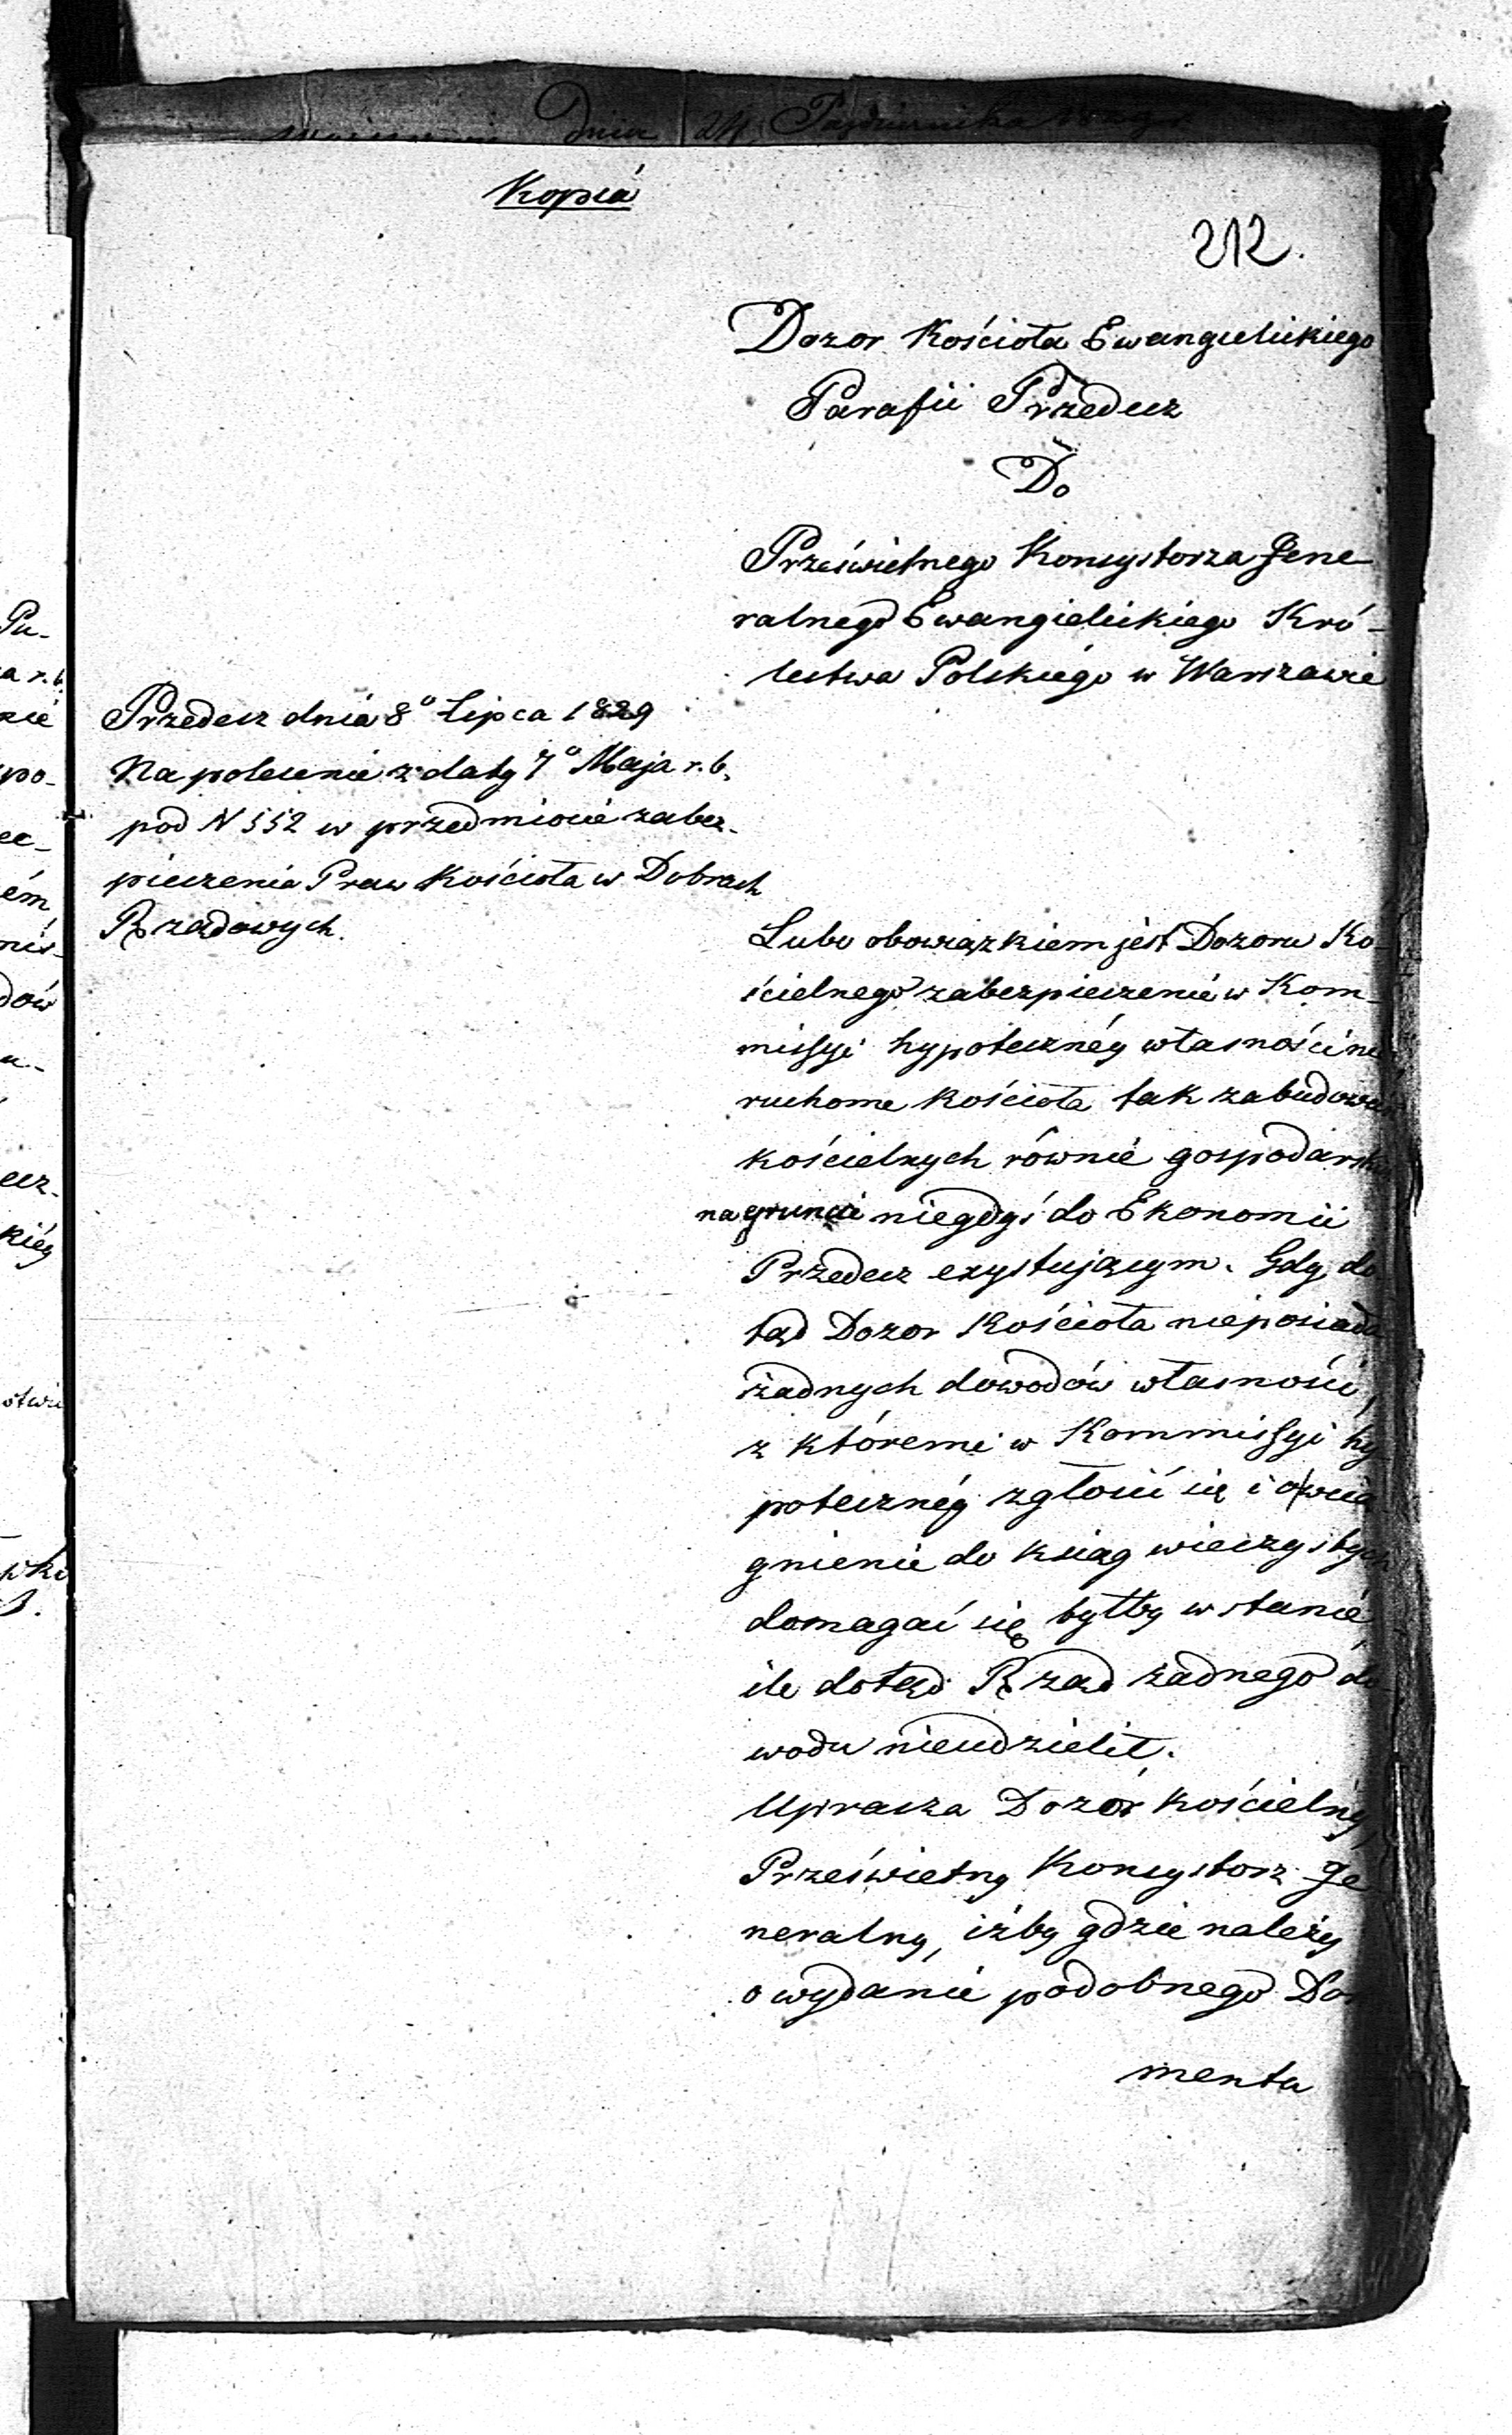 Dnia 24 Października
Kopiá
212.
Dozor Kościoła Ewangielickiego
Parafii Przedecz
Do
Prześwietnego Konsystorza Jene-
ralnego Ewangielickiego Kró-
lestwa Polskiego w Warszawie
Przedecz dnia 8º Lipca 1829
Na polecenie z daty 7º Maja r. b.
pod N 552 w przedmiocie zabez-
pieczenia Praw Kościoła w Dobrach
Rządowych.
Lubo obowiązkiem jest Dozoru Ko-
ścielnego zabezpieczenie w Kom-
missyi hypoteczнéy własności nie
ruchome Kościoła tak zabudowań
kościelnych równie gospodarskich
na gruncie niegdyś do Ekonomii
Przedecz exystującym. Gdy do
tąd Dozor Kościoła nieposiada
żadnych dowodów własności,
z któremi w Kommissyi hy
potecznéy zgłosić się i o wcią
gnienie do ksiąg wieczystych
domagać się byłby w stanie,
ile dotąd Rząd żadnego do
wodu nieudzielił.
Uprasza Dozór Kościelny,
Prześwietny Konsystorz Je
neralny, iżby gdzie należy
o wydanie podobnego Do
mentu
Pu-
a r. b.
zie
po-
ec-
ém,
mis-
dów
u-
ecz-
kiéy
stwie